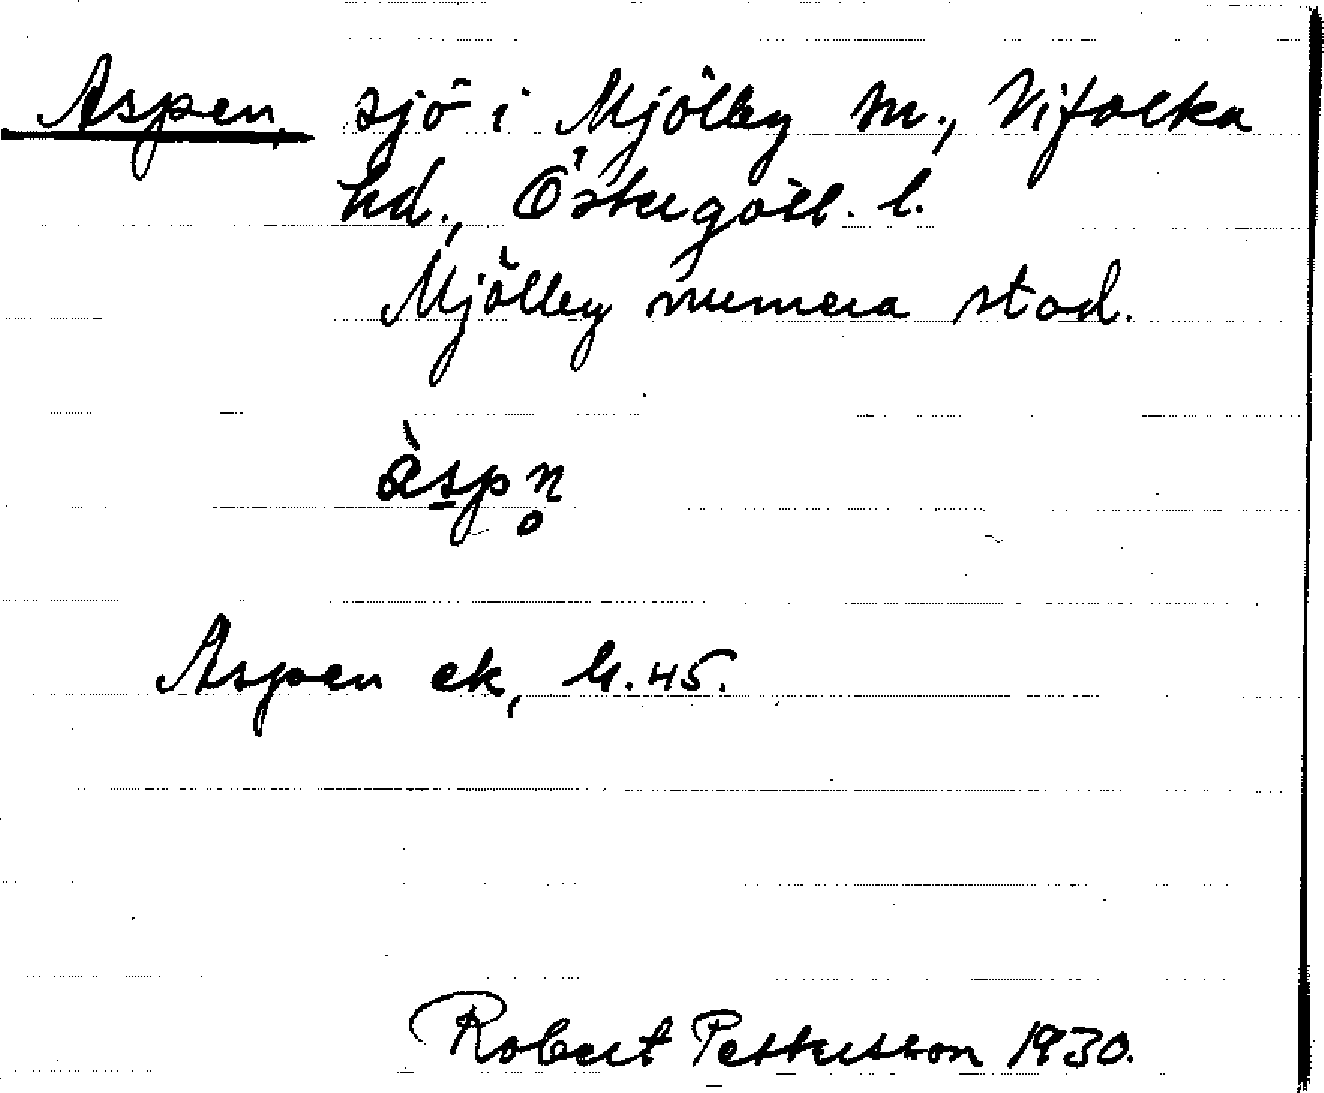 Aspen sjö i Mjölby sn., Vifolka
hd., Östergötl. l.
Mjölby numera stad.
àspn̥
Aspen ek, bl. 45.
Robert Pettersson 1930.